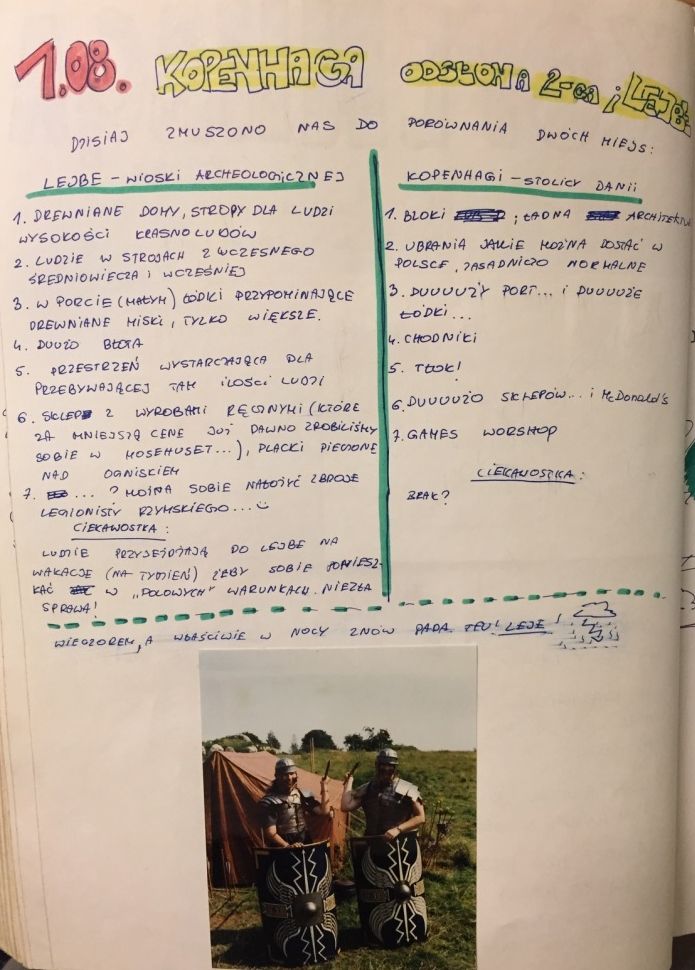 1.08. KOPENHAGA ODSŁONA 2-GA i LEJBE
DZISIAJ ZMUSZONO NAS DO PORÓWNANIA DWÓCH MIEJS:
LEJBE – WIOSKI ARCHEOLOGICZNEJ
1. DREWNIANE DOMY, STROPY DLA LUDZI
WYSOKOŚCI KRASNOLUDÓW
2. LUDZIE W STROJACH Z WCZESNEGO
ŚREDNIOWIECZA I WCZEŚNIEJ
3. W PORCIE (MAŁYM) ŁÓDKI PRZYPOMINAJĄCE
DREWNIANE MISKI, TYLKO WIĘKSZE.
4. DUUŻO BŁOTA
5. PRZESTRZEŃ WYSTARCZAJĄCA DLA
PRZEBYWAJĄCEJ TAM ILOŚCI LUDZI
6. SKLEP Z WYROBAMI RĘCZNYMI (KTÓRE
ZA MNIEJSZĄ CENĘ JUŻ DAWNO ZROBILIŚMY
SOBIE W MOSEHUSET...), PLACKI PIECZONE
NAD OGNISKIEM
7. ... ? MOŻNA SOBIE NAŁOŻYĆ ZBROJĘ
LEGIONISTY RZYMSKIEGO...
CIEKAWOSTKA:
LUDZIE PRZYJEŻDŻAJĄ DO LEJBE NA
WAKACJE (NA TYDZIEŃ) ŻEBY SOBIE POMIESZ-
KAĆ W „POLOWYCH" WARUNKACH. NIEZŁA
SPRAWA!
KOPENHAGI – STOLICY DANII
1. BLOKI ; ŁADNA ARCHITEKTURA
2. UBRANIA JAKIE MOŻNA DOSTAĆ W
POLSCE, ZASADNICZO NORMALNE
3. DUUUUŻY PORT... I DUUUUŻE
ŁÓDKI...
4. CHODNIKI
5. TŁOK!
6. DUUUUŻO SKLEPÓW... i McDonald's
7. GAMES WORSHOP
CIEKAWOSTKA:
BRAK?
WIECZOREM, A WŁAŚCIWIE W NOCY ZNÓW PADA. LEJE!